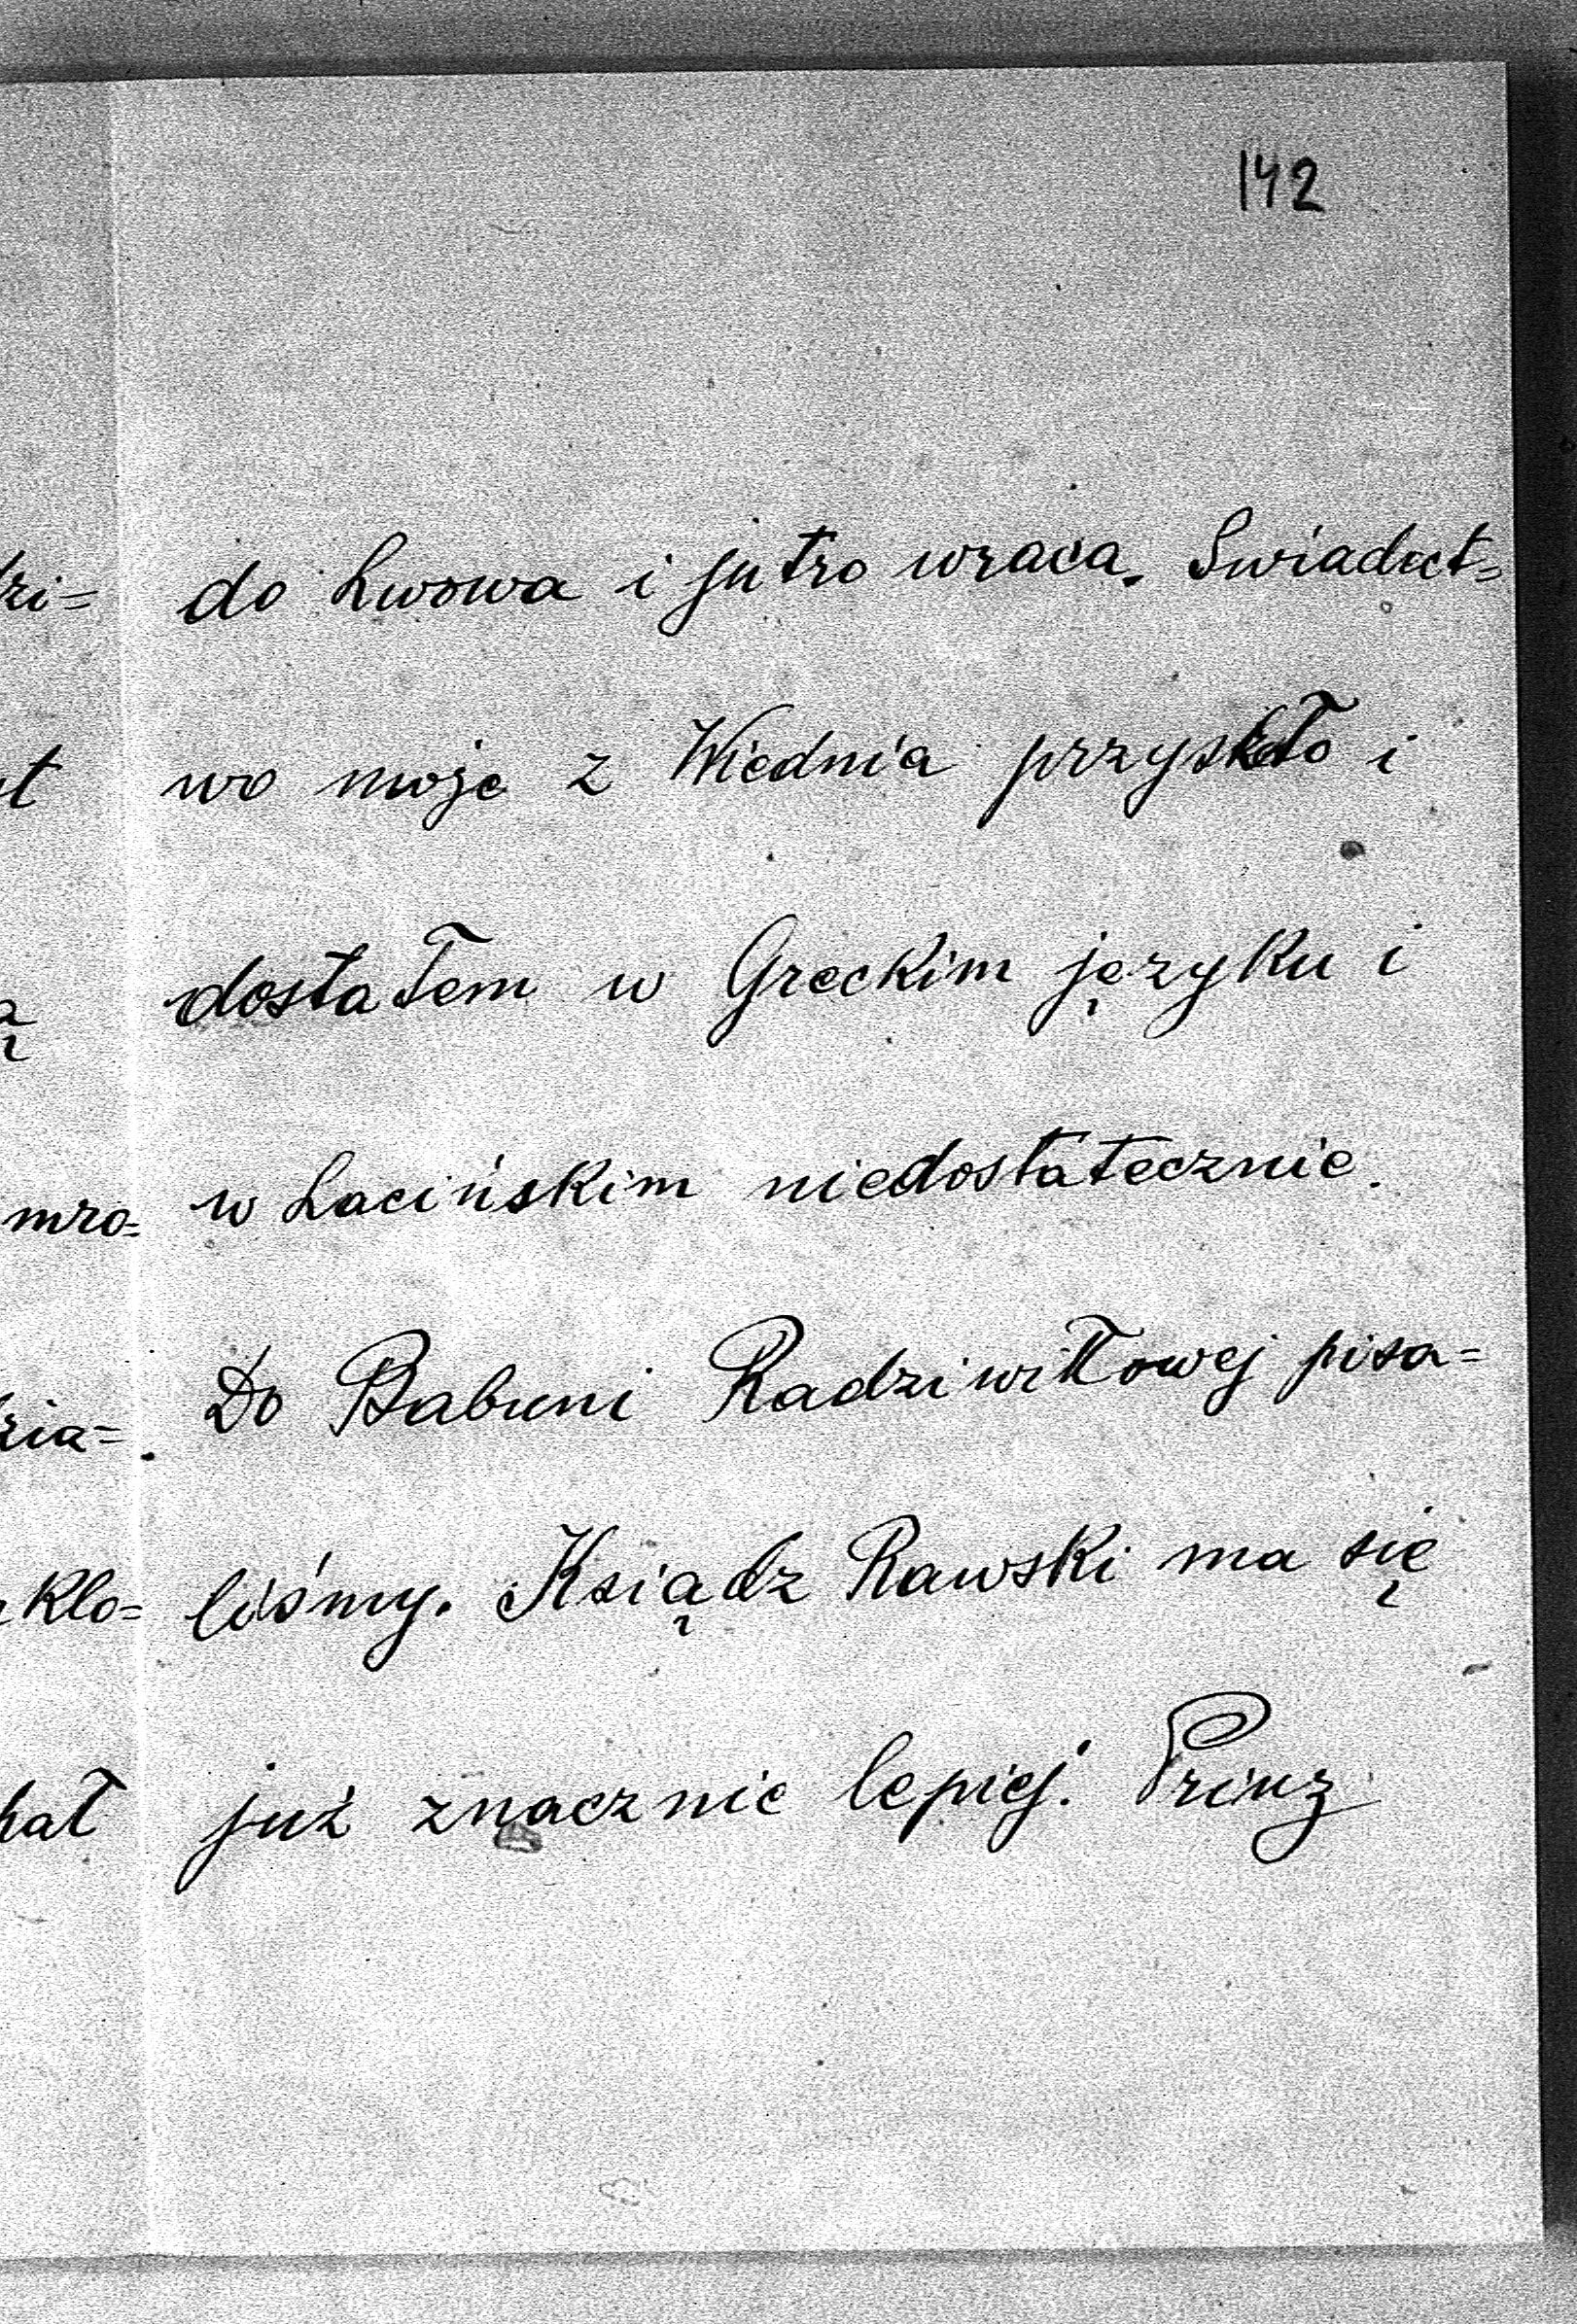 142
do Lwowa i jutro wraca. Swiadect=
wo moje z Wiednia przyszło i
dostałem w Greckim języku i
w Łacińskim niedostatecznie.
Do Babuni Radziwiłłowej pisa=
liśmy. Ksiądz Rawski ma się
już znacznie lepiej. Prinz